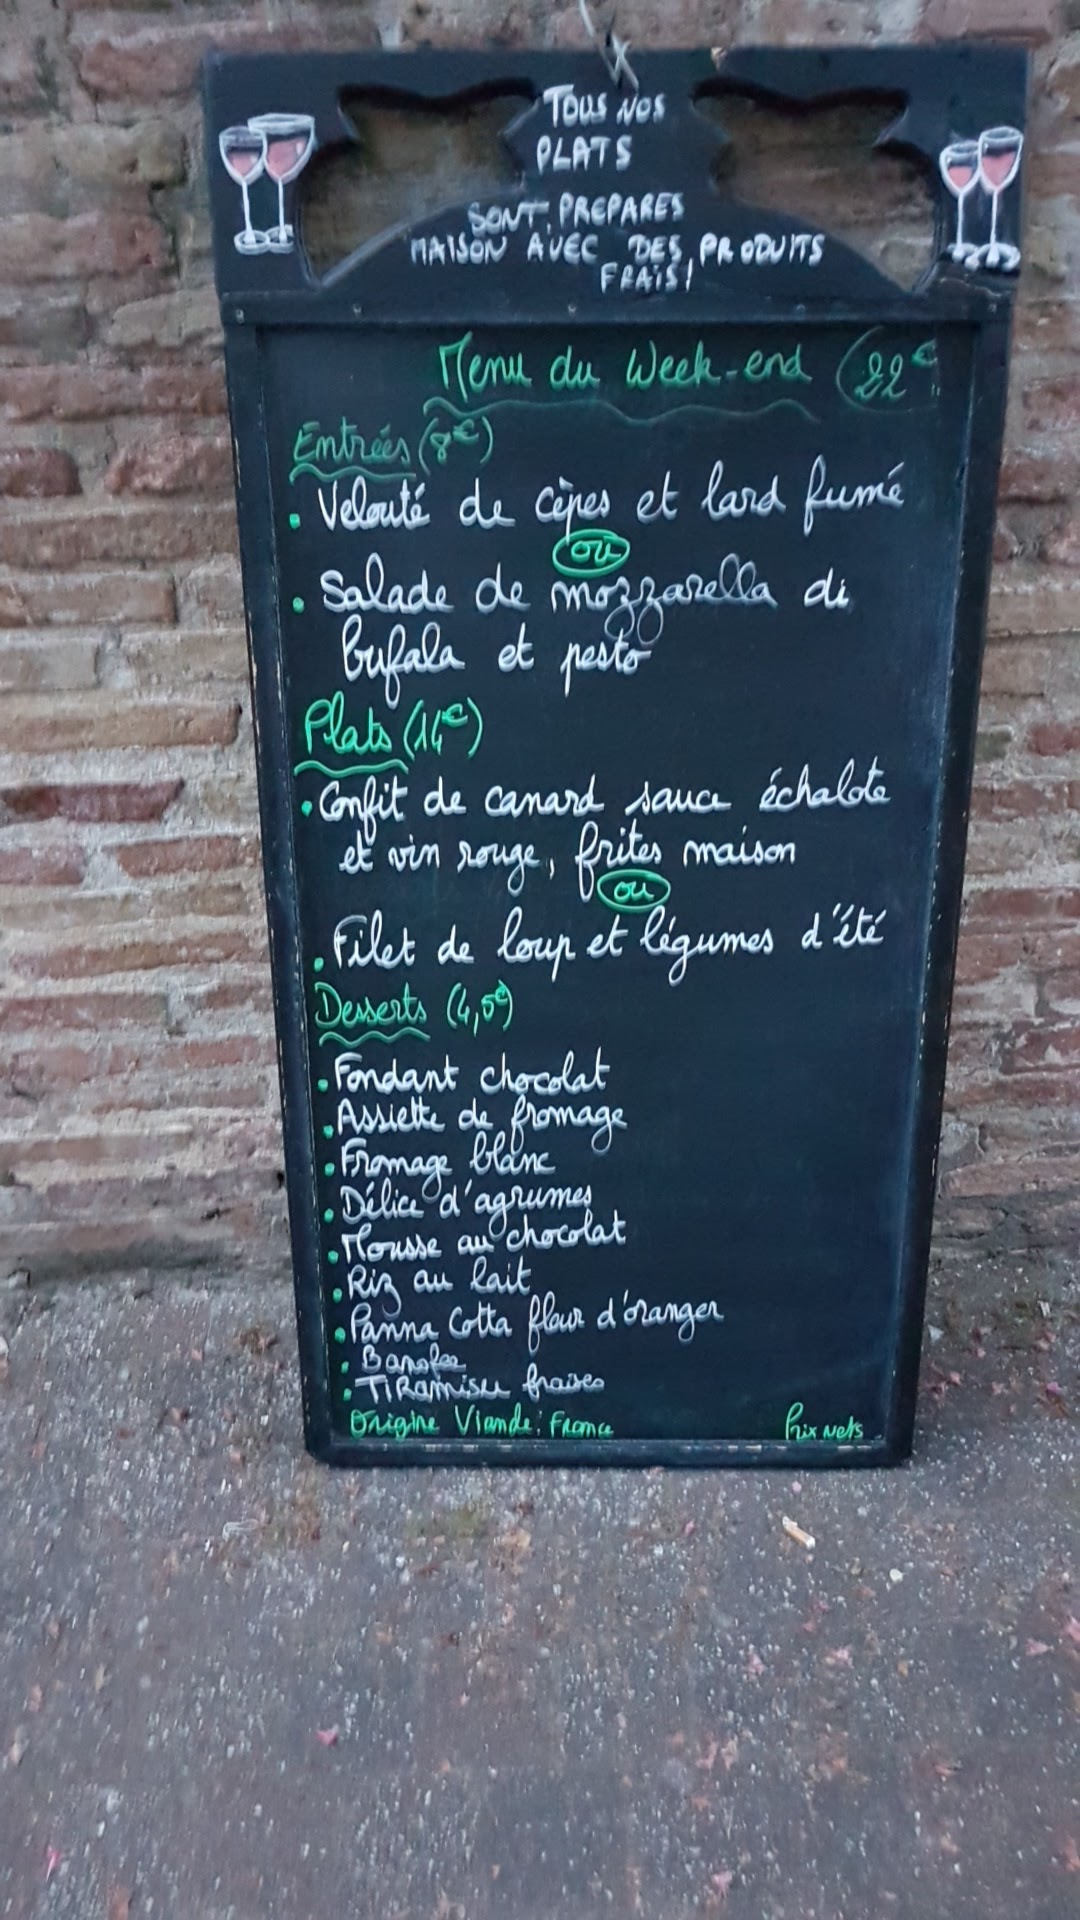 TOUS NOS
PLATS
SONT PREPARES
MAISON AVEC DES PRODUITS
FRAIS!
Menu du Week-end (22€
Entrées (8€)
• Velouté de cèpes et lard fumé
ou
• Salade de mozzarella di
bufala et pesto
Plats (14€)
• Confit de canard sauce échalote
et vin rouge, frites maison
ou
• Filet de loup et légumes d'été
Desserts (4,5€)
• Fondant chocolat
• Assiette de fromage
• Fromage blanc
• Délice d'agrumes
• Mousse au chocolat
• Riz au lait
• Panna Cotta fleur d'oranger
• Banofee
• Tiramisu fraises
Origine Viande: France Prix nets